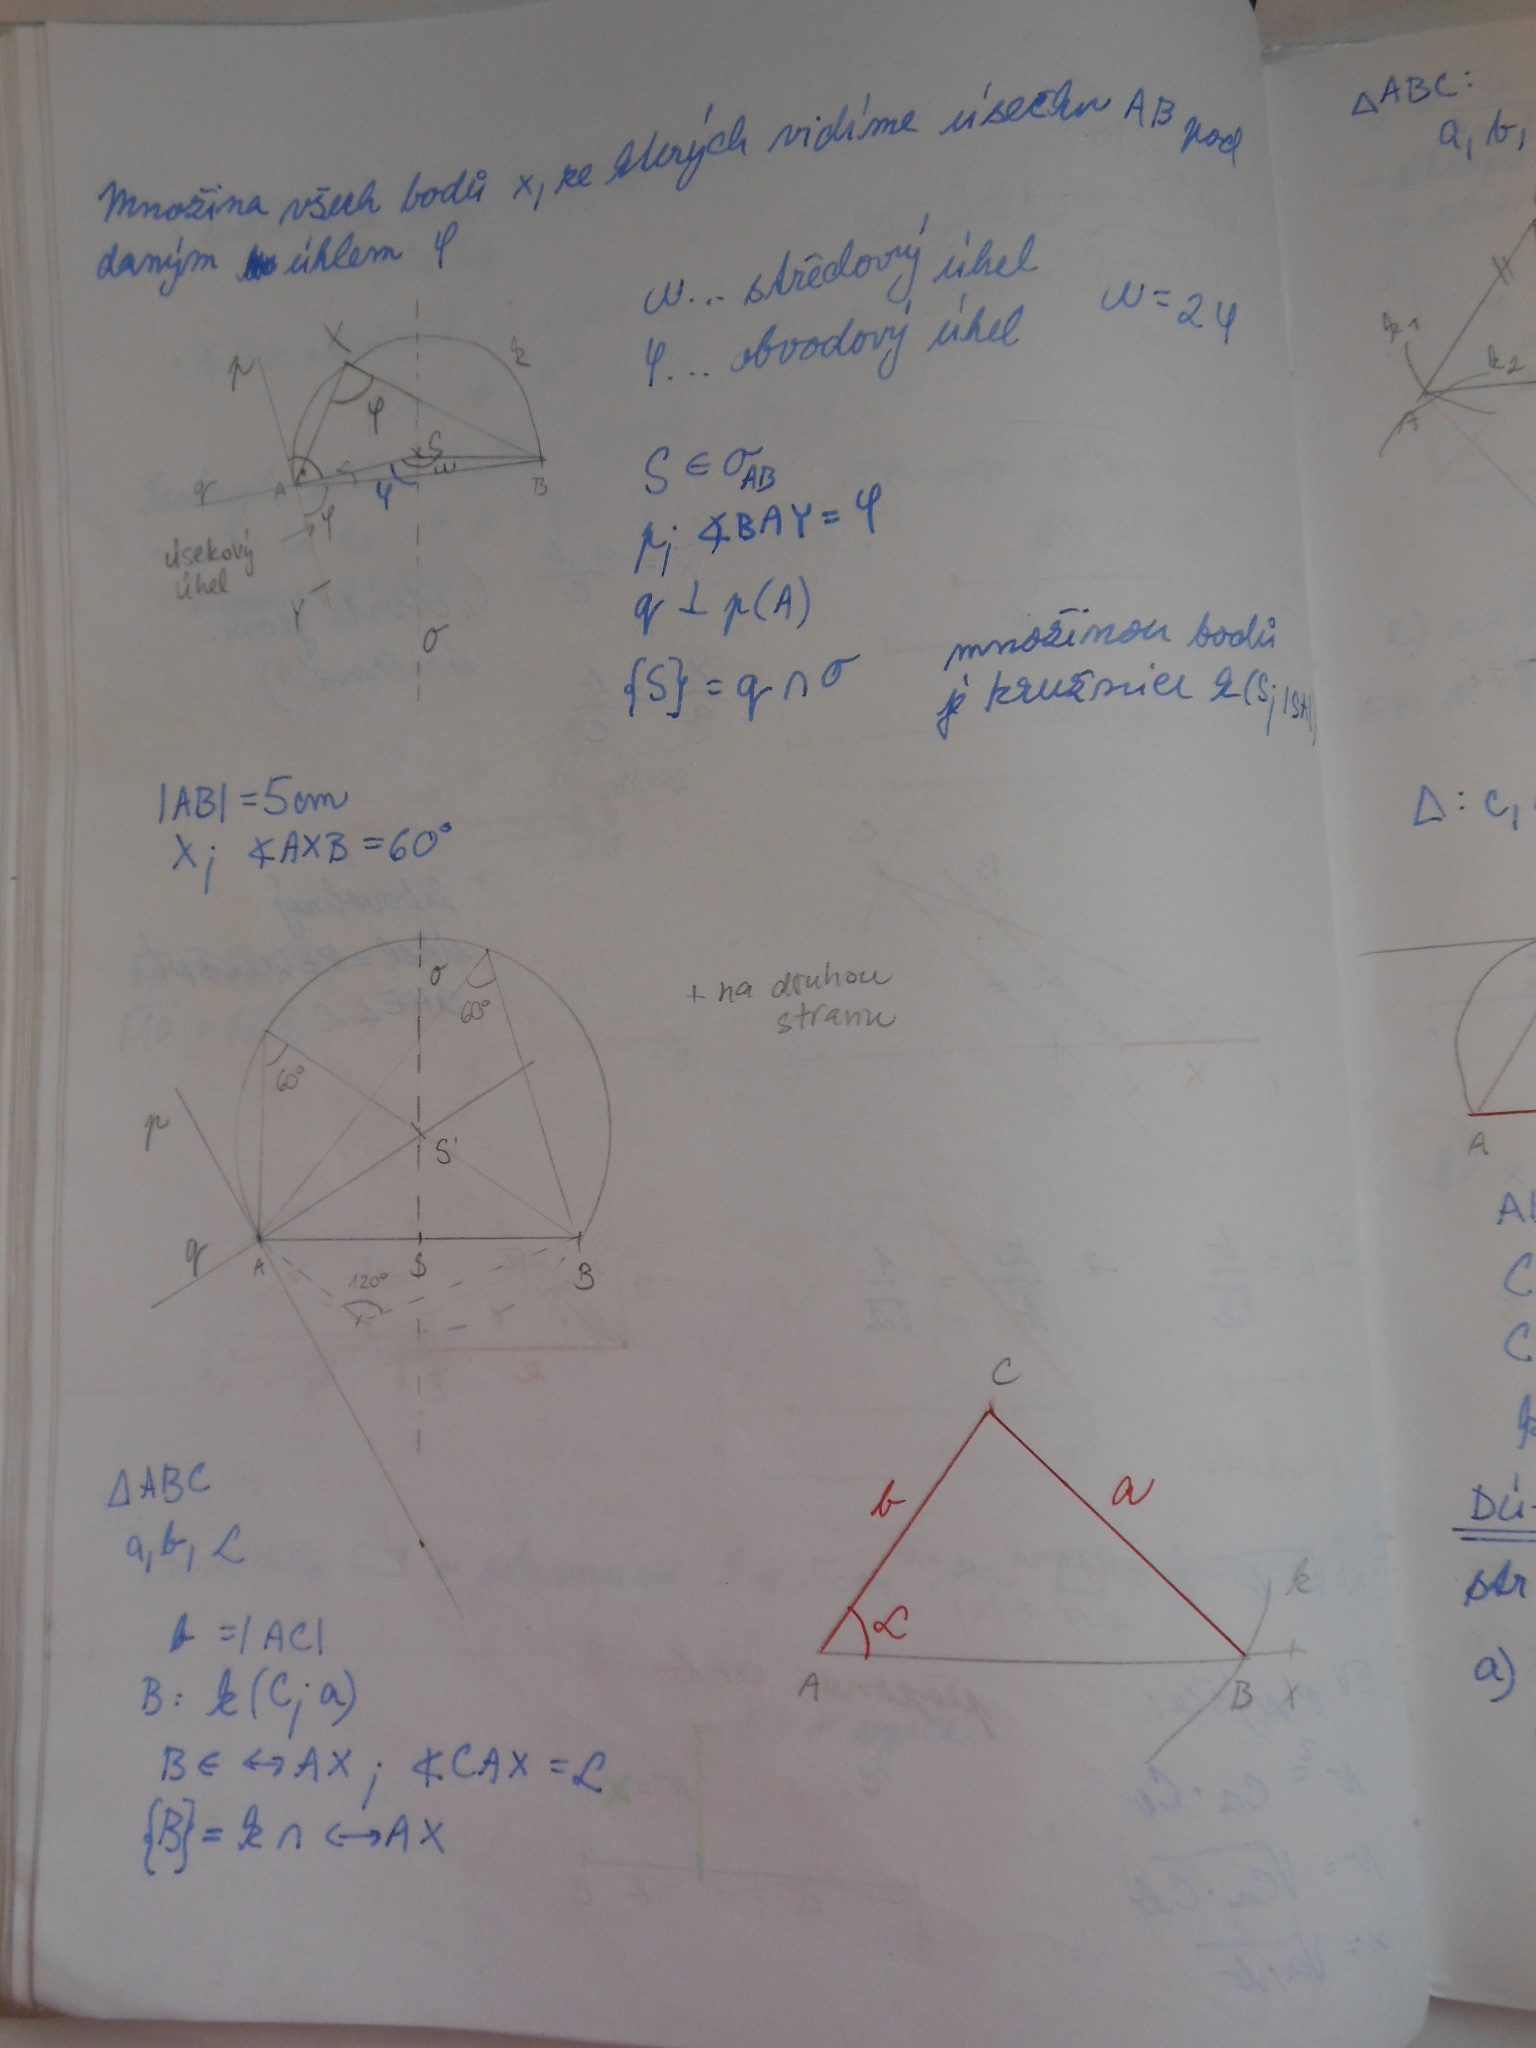 Množina všech bodů x, ze kterých vidíme úsečku AB pod
daným úhlem φ
ω... středový úhel
φ... obvodový úhel
ω = 2φ
X
k
p
φ
S
ω
q
A
φ
B
φ
úsekový
úhel
Y
σ
S ∈ σAB
p; ∢BAY = φ
q ⊥ p(A)
{S} = q ∩ σ
množinou bodů
je kružnice k(S; |SA|)
|AB| = 5cm
X; ∢AXB = 60°
σ
60°
60°
+ na druhou
stranu
p
S'
q
A
S
B
120°
△ABC
a, b, α
b = |AC|
B: k(C; a)
B ∈ ↔AX; ∢CAX = α
{B} = k ∩ ↔AX
C
b
a
α
k
A
B
X
△ABC:
a, b,
k1
k2
A
△: c,
A
C
C
k
DÚ
str
a)